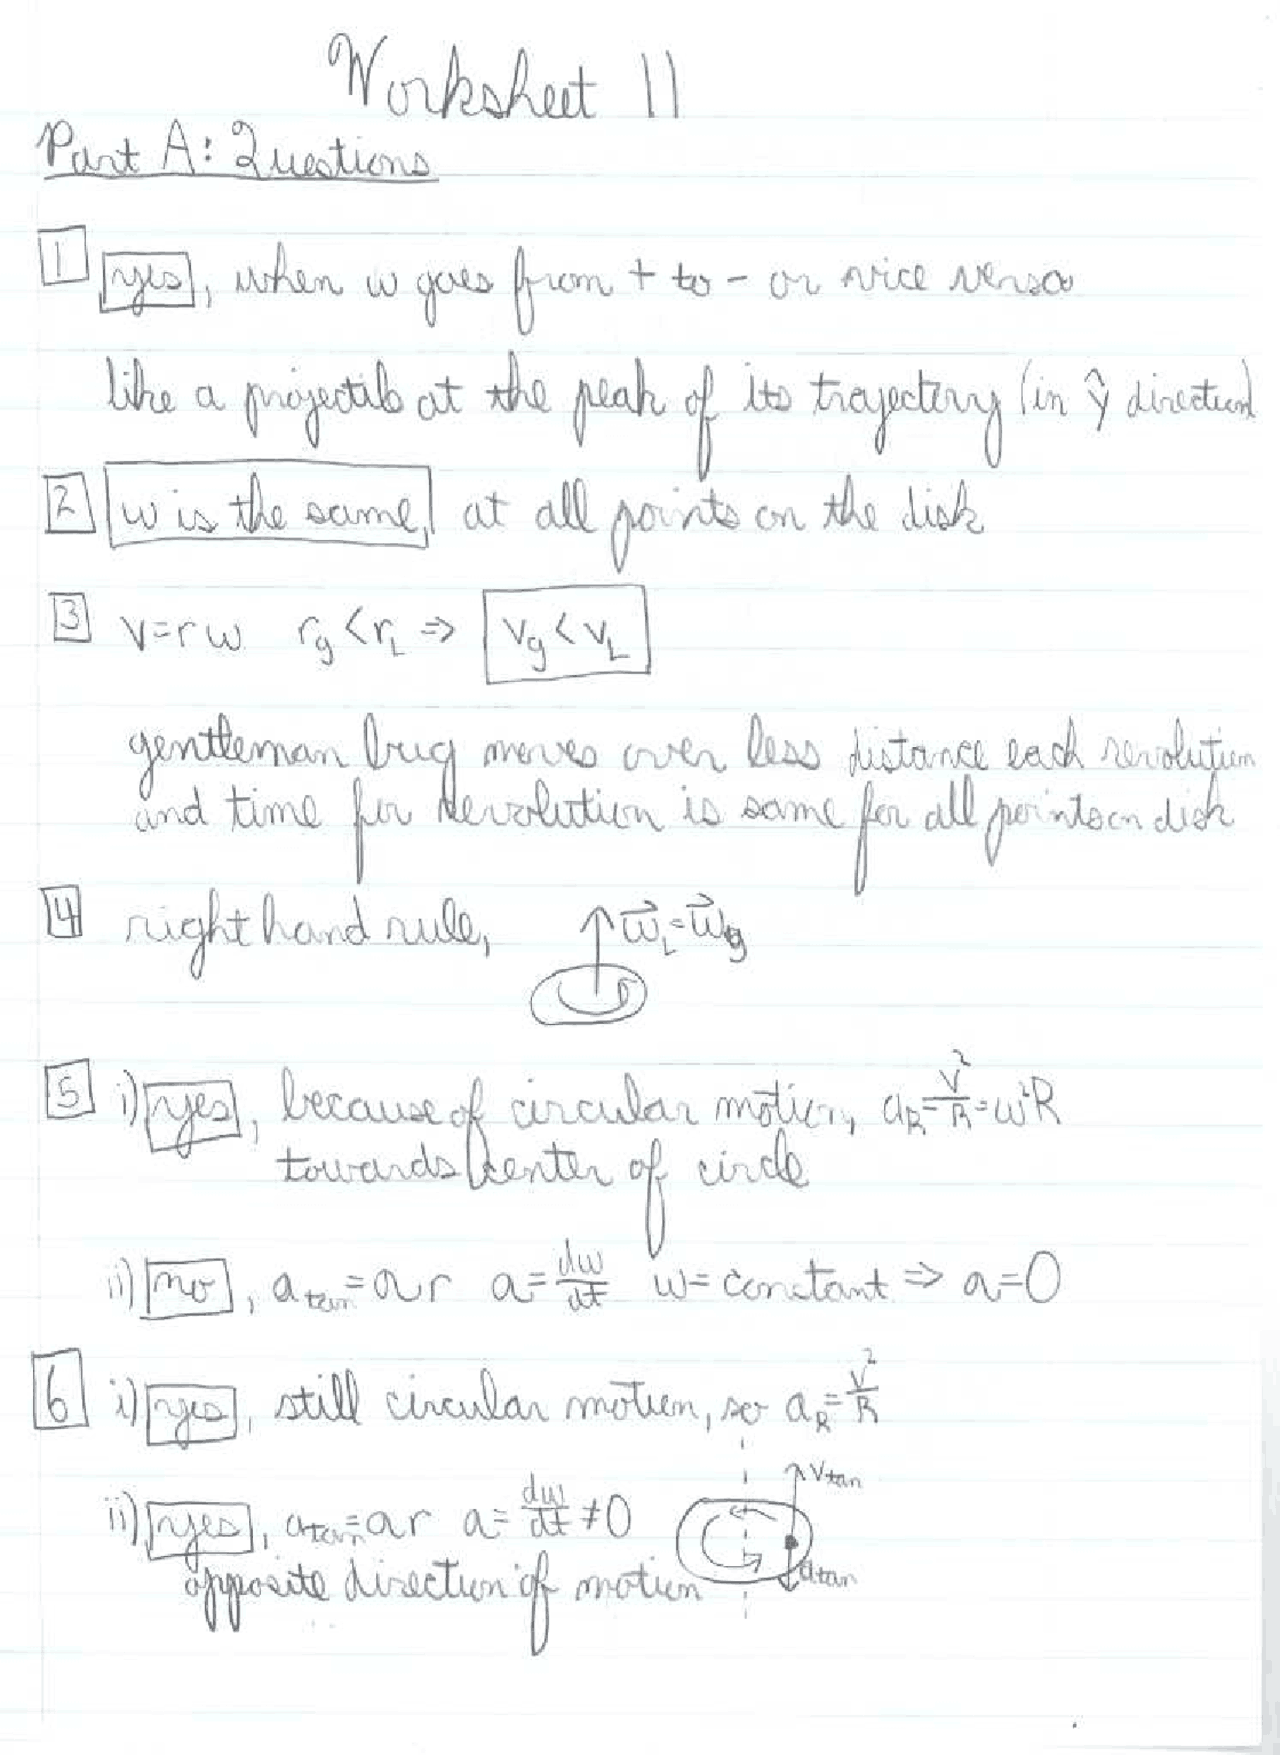 Worksheet 11
Part A: Questions
1 yes, when w goes from + to - or vice versa
like a projectile at the peak of its trajectory (in ŷ direction)
2 w is the same, at all points on the disk
3 v=rw r_g < r_L ⇒ v_g < v_L
gentleman bug moves over less distance each revolution
and time for revolution is same for all points on disk
4 right hand rule, w⃗_L = w⃗_g
5 i) yes, because of circular motion, a_R = v²/R = w²R
towards center of circle
ii) no, a_tan = ar a = dw/dt w = constant ⇒ a = 0
6 i) yes, still circular motion, so a_R = v²/R
v_tan
ii) yes, a_tan = ar a = dw/dt ≠ 0
opposite direction of motion
a_tan